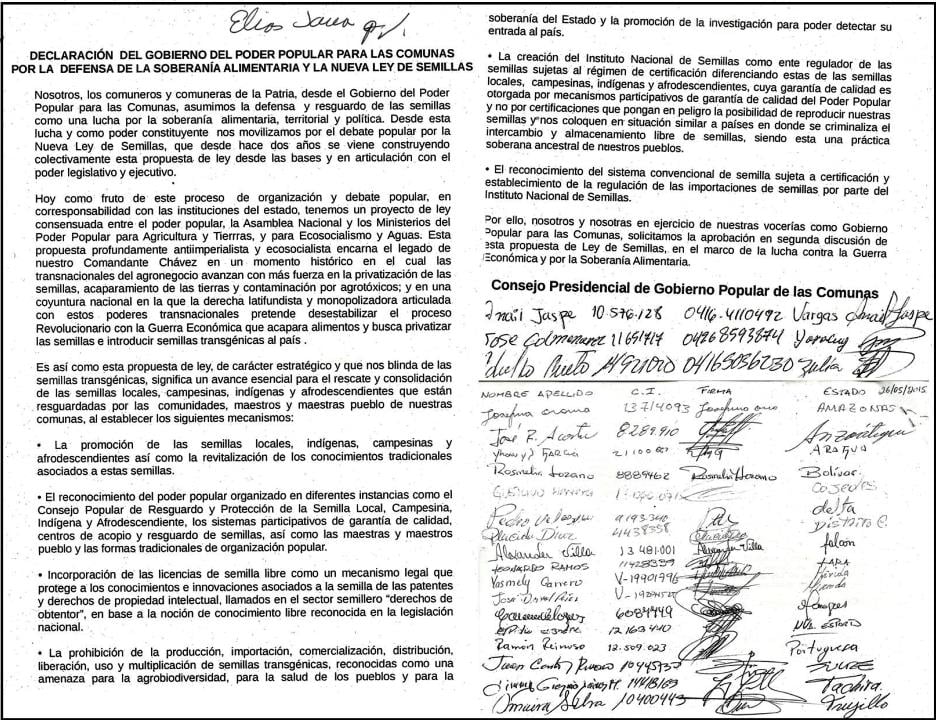 DECLARACIÓN DEL GOBIERNO DEL PODER POPULAR PARA LAS COMUNAS
POR LA DEFENSA DE LA SOBERANÍA ALIMENTARIA Y LA NUEVA LEY DE SEMILLAS
Nosotros, los comuneros y comuneras de la Patria, desde el Gobierno del Poder
Popular para las Comunas, asumimos la defensa y resguardo de las semillas
como una lucha por la soberanía alimentaria, territorial y política. Desde esta
lucha y como poder constituyente nos movilizamos por el debate popular por la
Nueva Ley de Semillas, que desde hace dos años se viene construyendo
colectivamente esta propuesta de ley desde las bases y en articulación con el
poder legislativo y ejecutivo.
Hoy como fruto de este proceso de organización y debate popular, en
corresponsabilidad con las instituciones del estado, tenemos un proyecto de ley
consensuada entre el poder popular, la Asamblea Nacional y los Ministerios del
Poder Popular para Agricultura y Tierrras, y para Ecosocialismo y Aguas. Esta
propuesta profundamente antiimperialista y ecosocialista encarna el legado de
nuestro Comandante Chávez en un momento histórico en el cual las
transnacionales del agronegocio avanzan con más fuerza en la privatización de las
semillas, acaparamiento de las tierras y contaminación por agrotóxicos; y en una
coyuntura nacional en la que la derecha latifundista y monopolizadora articulada
con estos poderes transnacionales pretende desestabilizar el proceso
Revolucionario con la Guerra Económica que acapara alimentos y busca privatizar
las semillas e introducir semillas transgénicas al país .
Es así como esta propuesta de ley, de carácter estratégico y que nos blinda de las
semillas transgénicas, significa un avance esencial para el rescate y consolidación
de las semillas locales, campesinas, indígenas y afrodescendientes que están
resguardadas por las comunidades, maestros y maestras pueblo de nuestras
comunas, al establecer los siguientes mecanismos:
• La promoción de las semillas locales, indígenas, campesinas y
afrodescendientes así como la revitalización de los conocimientos tradicionales
asociados a estas semillas.
• El reconocimiento del poder popular organizado en diferentes instancias como el
Consejo Popular de Resguardo y Protección de la Semilla Local, Campesina,
Indígena y Afrodescendiente, los sistemas participativos de garantía de calidad,
centros de acopio y resguardo de semillas, así como las maestras y maestros
pueblo y las formas tradicionales de organización popular.
• Incorporación de las licencias de semilla libre como un mecanismo legal que
protege a los conocimientos e innovaciones asociados a la semilla de las patentes
y derechos de propiedad intelectual, llamados en el sector semillero "derechos de
obtentor", en base a la noción de conocimiento libre reconocida en la legislación
nacional.
• La prohibición de la producción, importación, comercialización, distribución,
liberación, uso y multiplicación de semillas transgénicas, reconocidas como una
amenaza para la agrobiodiversidad, para la salud de los pueblos y para la
soberanía del Estado y la promoción de la investigación para poder detectar su
entrada al país.
• La creación del Instituto Nacional de Semillas como ente regulador de las
semillas sujetas al régimen de certificación diferenciando estas de las semillas
locales, campesinas, indígenas y afrodescendientes, cuya garantía de calidad es
otorgada por mecanismos participativos de garantía de calidad del Poder Popular
y no por certificaciones que pongan en peligro la posibilidad de reproducir nuestras
semillas y nos coloquen en situación similar a países en donde se criminaliza el
intercambio y almacenamiento libre de semillas, siendo esta una práctica
soberana ancestral de nuestros pueblos.
• El reconocimiento del sistema convencional de semilla sujeta a certificación y
establecimiento de la regulación de las importaciones de semillas por parte del
Instituto Nacional de Semillas.
Por ello, nosotros y nosotras en ejercicio de nuestras vocerías como Gobierno
Popular para las Comunas, solicitamos la aprobación en segunda discusión de
esta propuesta de Ley de Semillas, en el marco de la lucha contra la Guerra
Económica y por la Soberanía Alimentaria.
Consejo Presidencial de Gobierno Popular de las Comunas
Jaspe 10.576.128 0416.4110492 Vargas
Jose Colmenarez 11651717 04268593874 Yaracuy
04165036230 Zulia
NOMBRE APELLIDO C.I. FIRMA ESTADO 26/05/2015
Josefina 13714093 AMAZONAS
José R. Acosta 8289.910 Anzoátegui
García ARAGUA
Rosmelis Lozano 8889462 Bolívar
Cojedes
Pedro delta
4438358 DISTRITO C.
Alexander Villa 13 481.001 falcon
LEONARDO RAMOS LARA
Yosmely Carrero V-19901996 Mérida
José V-
6084449
12163440 ESPARTA
Ramón Reinoso 12.509.023 Portuguesa
Juan SUCRE
Tachira
Omaira Silva 10400443 Trujillo